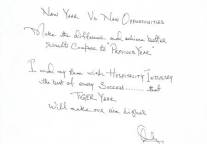 New Year Vs New Opportunities
Make the difference and achieve better
results Compare to "Previous Year"
I and my team wish Hospitality Industry
the best of every Success.......... that
Tiger Year
Will make our aim higher